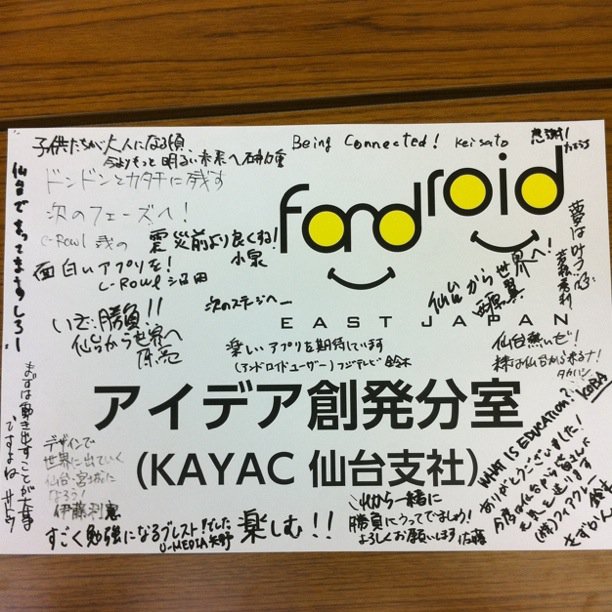 子供たちが大人になる頃、
今よりもっと明るい未来へ
Being Connected! Kei Sato
感謝!
ドンドンとカタチに残す
仙台でまってますしろー
次のフェーズへ!
C-Rowl
震災前より良くね!
小泉
面白いアプリを!
C-Rowl 沼田
fandroid
EAST JAPAN
仙台から世界へ!
西原翼
夢は叶う
次のステージへ
いざ、勝負!!
仙台から世界へ
原亮
楽しいアプリを期待しています
(アンドロイドユーザー) フジテレビ 鈴木
仙台熱いぜ!
タカハシ
KOBA
アイデア創発分室
(KAYAC 仙台支社)
まずは動き出すことが大事
ですよね サトウ
デザインで
世界に出ていく
仙台・宮城に
なろう!
伊藤利憲
WHAT IS EDUCATION?
ありがとうございました!
今度は仙台から皆さんに
元気を送ります
これから一緒に
勝負にうってでましょう!
よろしくお願いします 佐藤
すごく勉強になるブレストでした
U-MEDIA 矢野
楽しむ!!